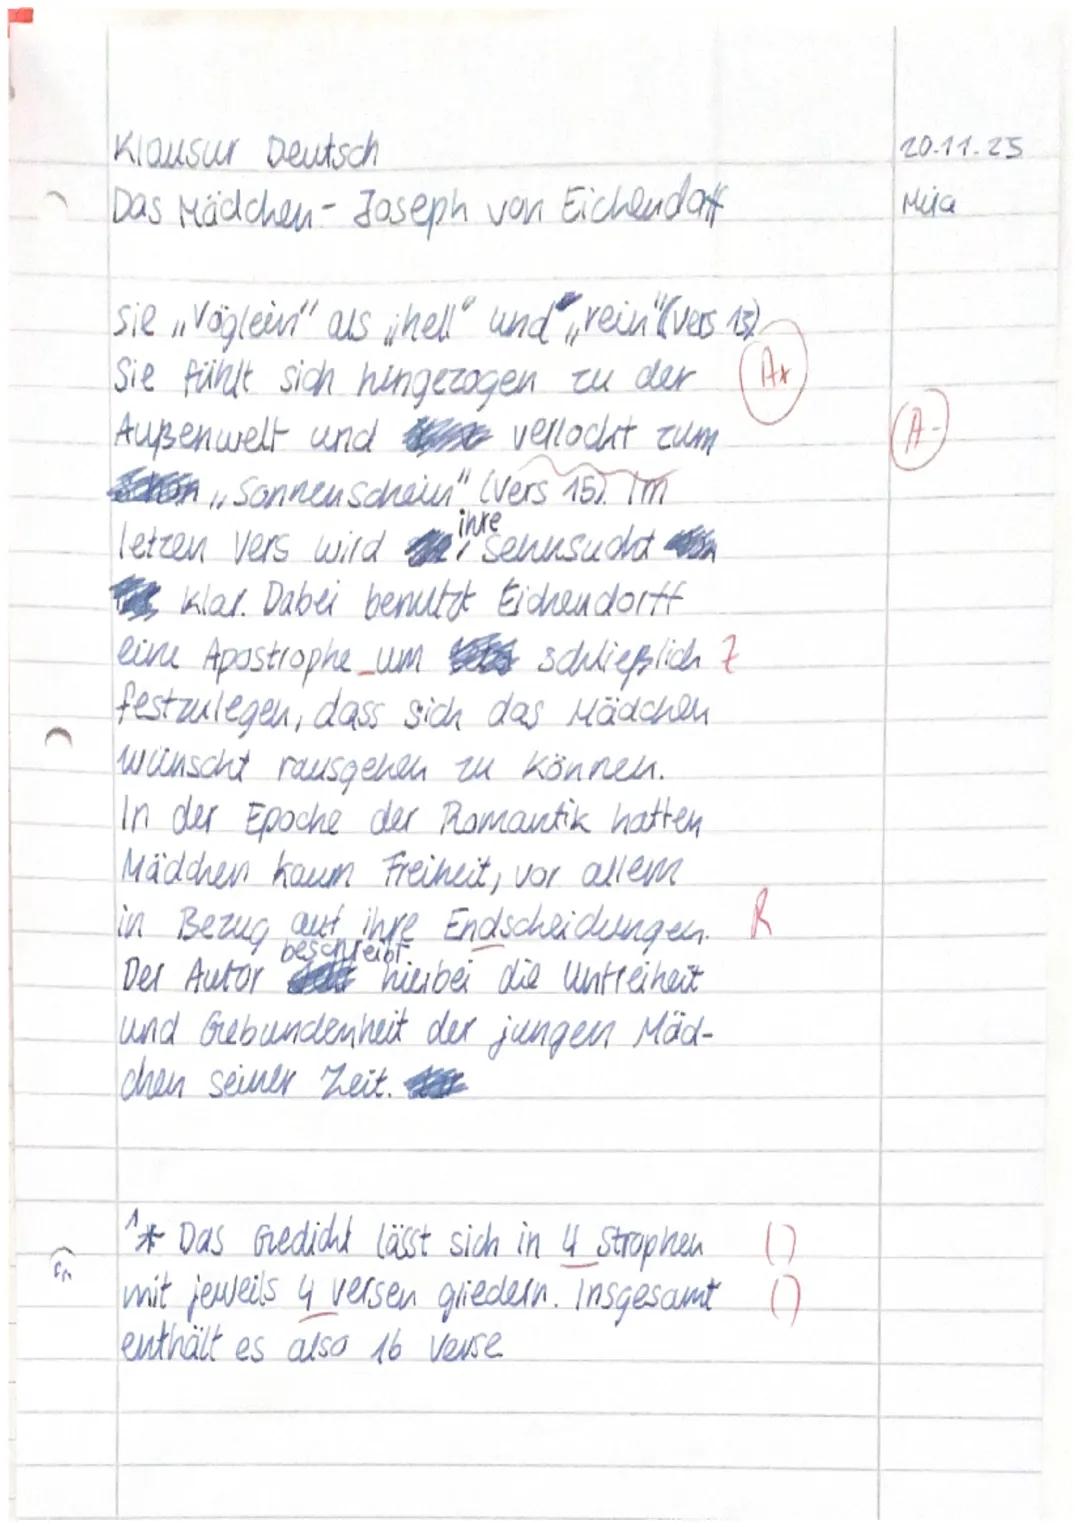 Klausur Deutsch
20.11.25
Das Mädchen - Joseph von Eichendorff
Mira
sie „Vöglein" als „hell" und „rein" (Vers 13).
Sie fühlt sich hingezogen zu der
A*
Außenwelt und verlockt zum
A-
„Sonnenschein" (Vers 15). Im
letzen Vers wird ihre Sehnsucht
klar. Dabei benutzt Eichendorff
eine Apostrophe um schließlich Z
festzulegen, dass sich das Mädchen
wünscht rausgehen zu können.
In der Epoche der Romantik hatten
Mädchen kaum Freiheit, vor allem
in Bezug auf ihre Endscheidungen. R
Der Autor beschreibt hierbei die Unfreiheit
und Gebundenheit der jungen Mäd-
chen seiner Zeit.
1* Das Gedicht lässt sich in 4 Strophen ()
mit jeweils 4 Versen gliedern. Insgesamt ()
enthält es also 16 Verse